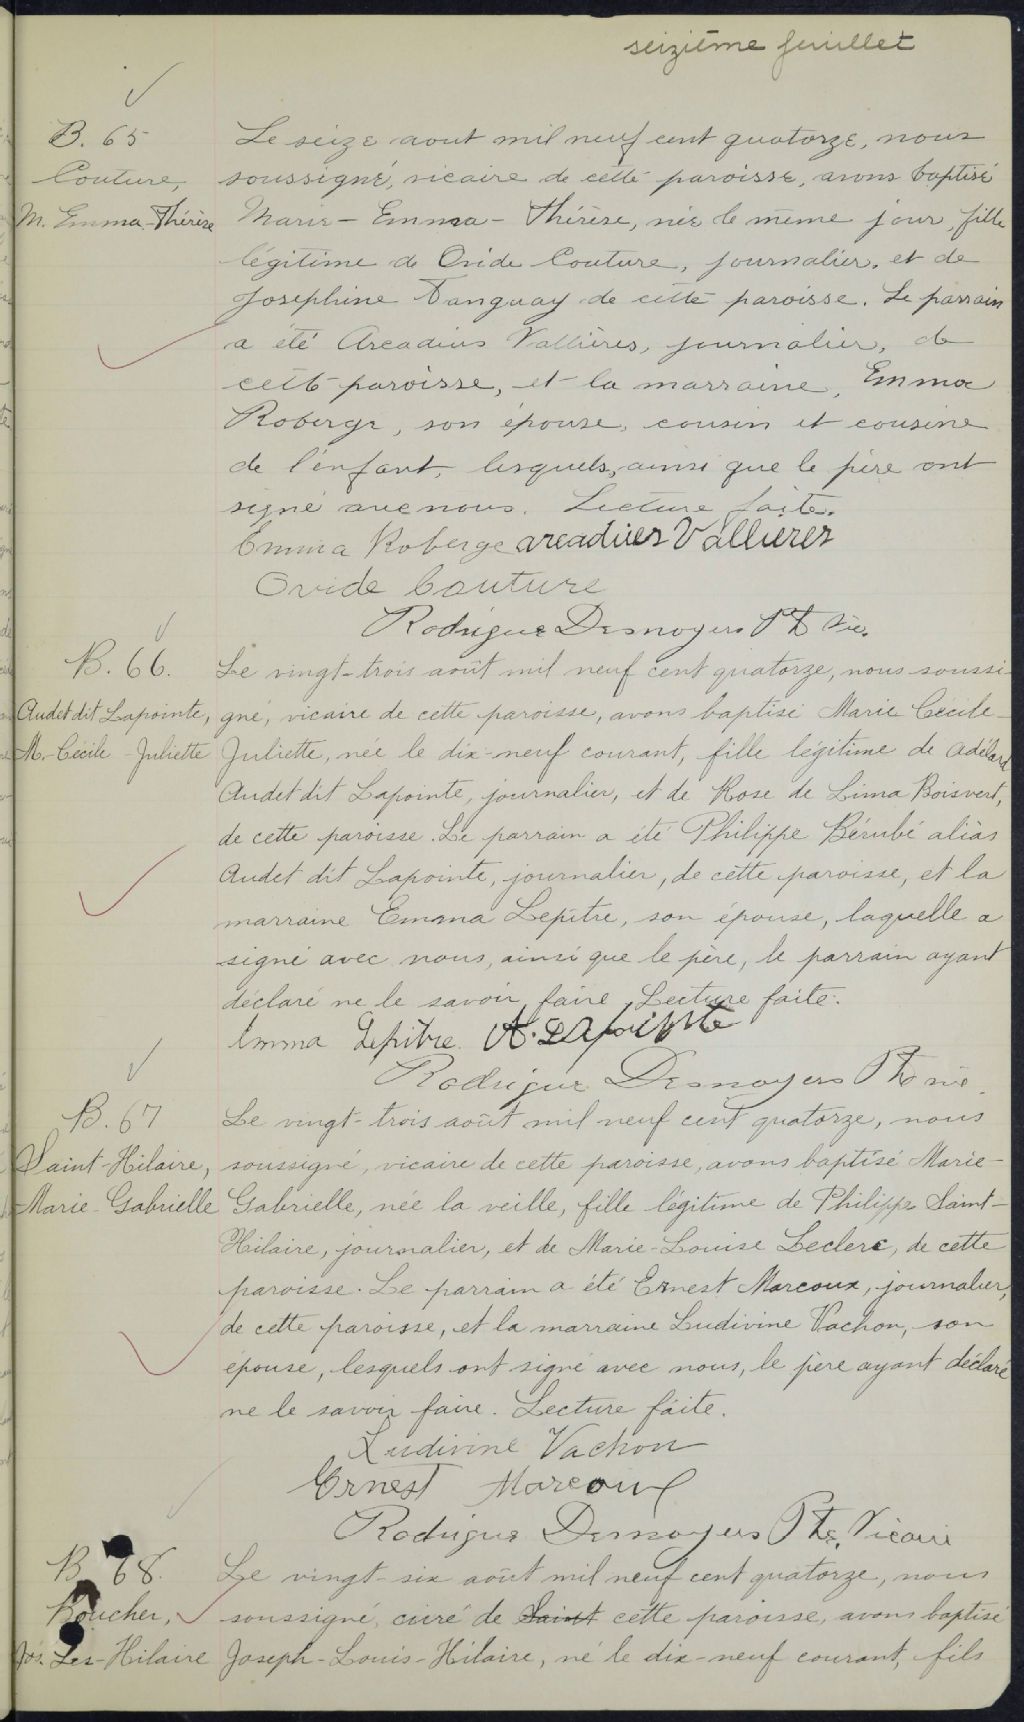 seizième feuillet
B. 65
Couture,
M. Emma-Thérèse
Le seize aout mil neuf cent quatorze, nous
soussigné, vicaire de cette paroisse, avons baptisé
Marie-Emma-Thérèse, née le même jour, fille
légitime de Ovide Couture, journalier, et de
Josephine Tanguay de cette paroisse. Le parrain
a été Arcadius Vallières, journalier, de
cette paroisse, et la marraine, Emma
Roberge, son épouse, cousin et cousine
de l'enfant, lesquels, ainsi que le père ont
signé avec nous. Lecture faite.
Emma Roberge arcadius Vallieres
Ovide Couture
Rodrigue Desnoyers Pt Vic.
B. 66.
Audet dit Lapointe,
M.-Cécile-Juliette
Le vingt-trois août mil neuf cent quatorze, nous soussi-
gné, vicaire de cette paroisse, avons baptisé Marie Cécile-
Juliette, née le dix-neuf courant, fille légitime de Adélard
Audet dit Lapointe, journalier, et de Rose de Lima Boisvert,
de cette paroisse. Le parrain a été Philippe Bérubé alias
Audet dit Lapointe, journalier, de cette paroisse, et la
marraine Emma Lepître, son épouse, laquelle a
signé avec nous, ainsi que le père, le parrain ayant
déclaré ne le savoir faire. Lecture faite.
Emma Lepitre A. Lapointe
Rodrigue Desnoyers Ptre vic.
B. 67
Saint-Hilaire,
Marie-Gabrielle
Le vingt-trois août mil neuf cent quatorze, nous
soussigné, vicaire de cette paroisse, avons baptisé Marie-
Gabrielle, née la veille, fille légitime de Philippe Saint-
Hilaire, journalier, et de Marie-Louise Leclerc, de cette
paroisse. Le parrain a été Ernest Marcoux, journalier,
de cette paroisse, et la marraine Ludivine Vachon, son
épouse, lesquels ont signé avec nous, le père ayant déclaré
ne le savoir faire. Lecture faite.
Ludivine Vachon
Ernest Marcoux
Rodrigue Desnoyers Ptre. Vicaire
B. 68.
Boucher,
Jos. Ls-Hilaire
Le vingt-six août mil neuf cent quatorze, nous
soussigné, curé de Saint cette paroisse, avons baptisé
Joseph-Louis-Hilaire, né le dix-neuf courant, fils